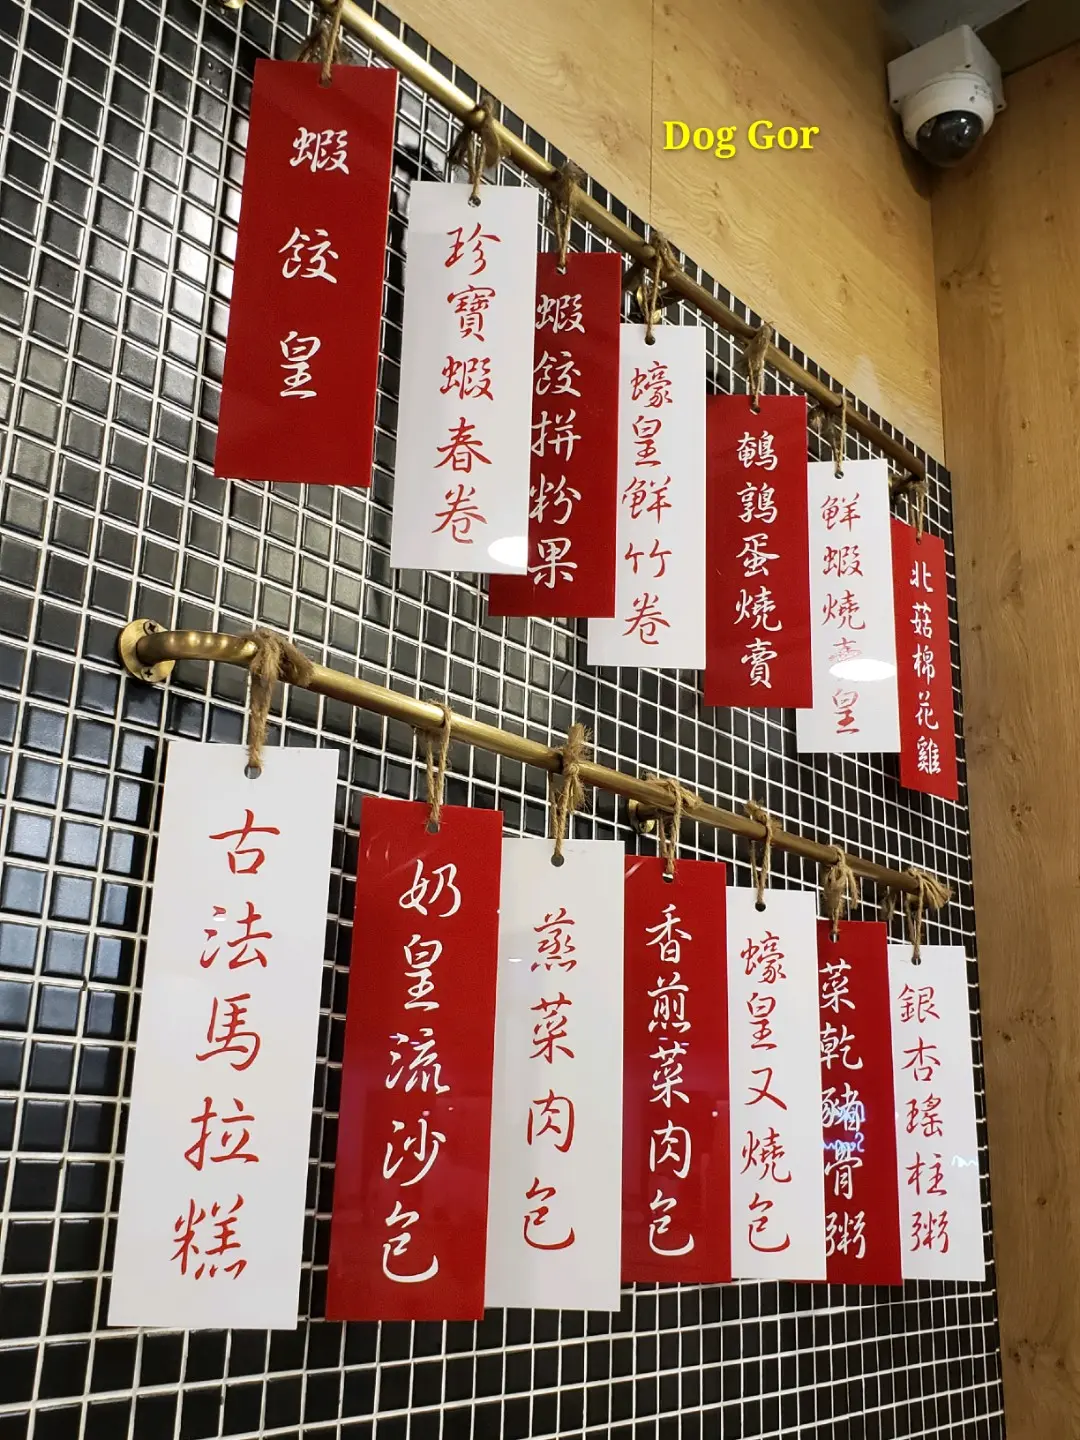 Dog Gor
蝦餃皇
珍寶蝦春卷
蝦餃拼粉果
蠔皇鮮竹卷
鵪鶉蛋燒賣
鮮蝦燒賣皇
北菇棉花雞
古法馬拉糕
奶皇流沙包
蒸菜肉包
香煎菜肉包
蠔皇叉燒包
菜乾豬骨粥
銀杏瑤柱粥